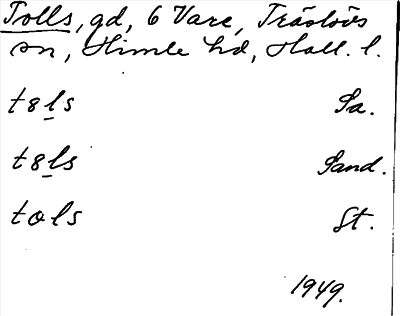 Tolls, gd, 6 Vare, Träslövs
sn, Himle hd, Hall. l.
t8ls Sa.
t8ls Sand.
tols St.
1949.